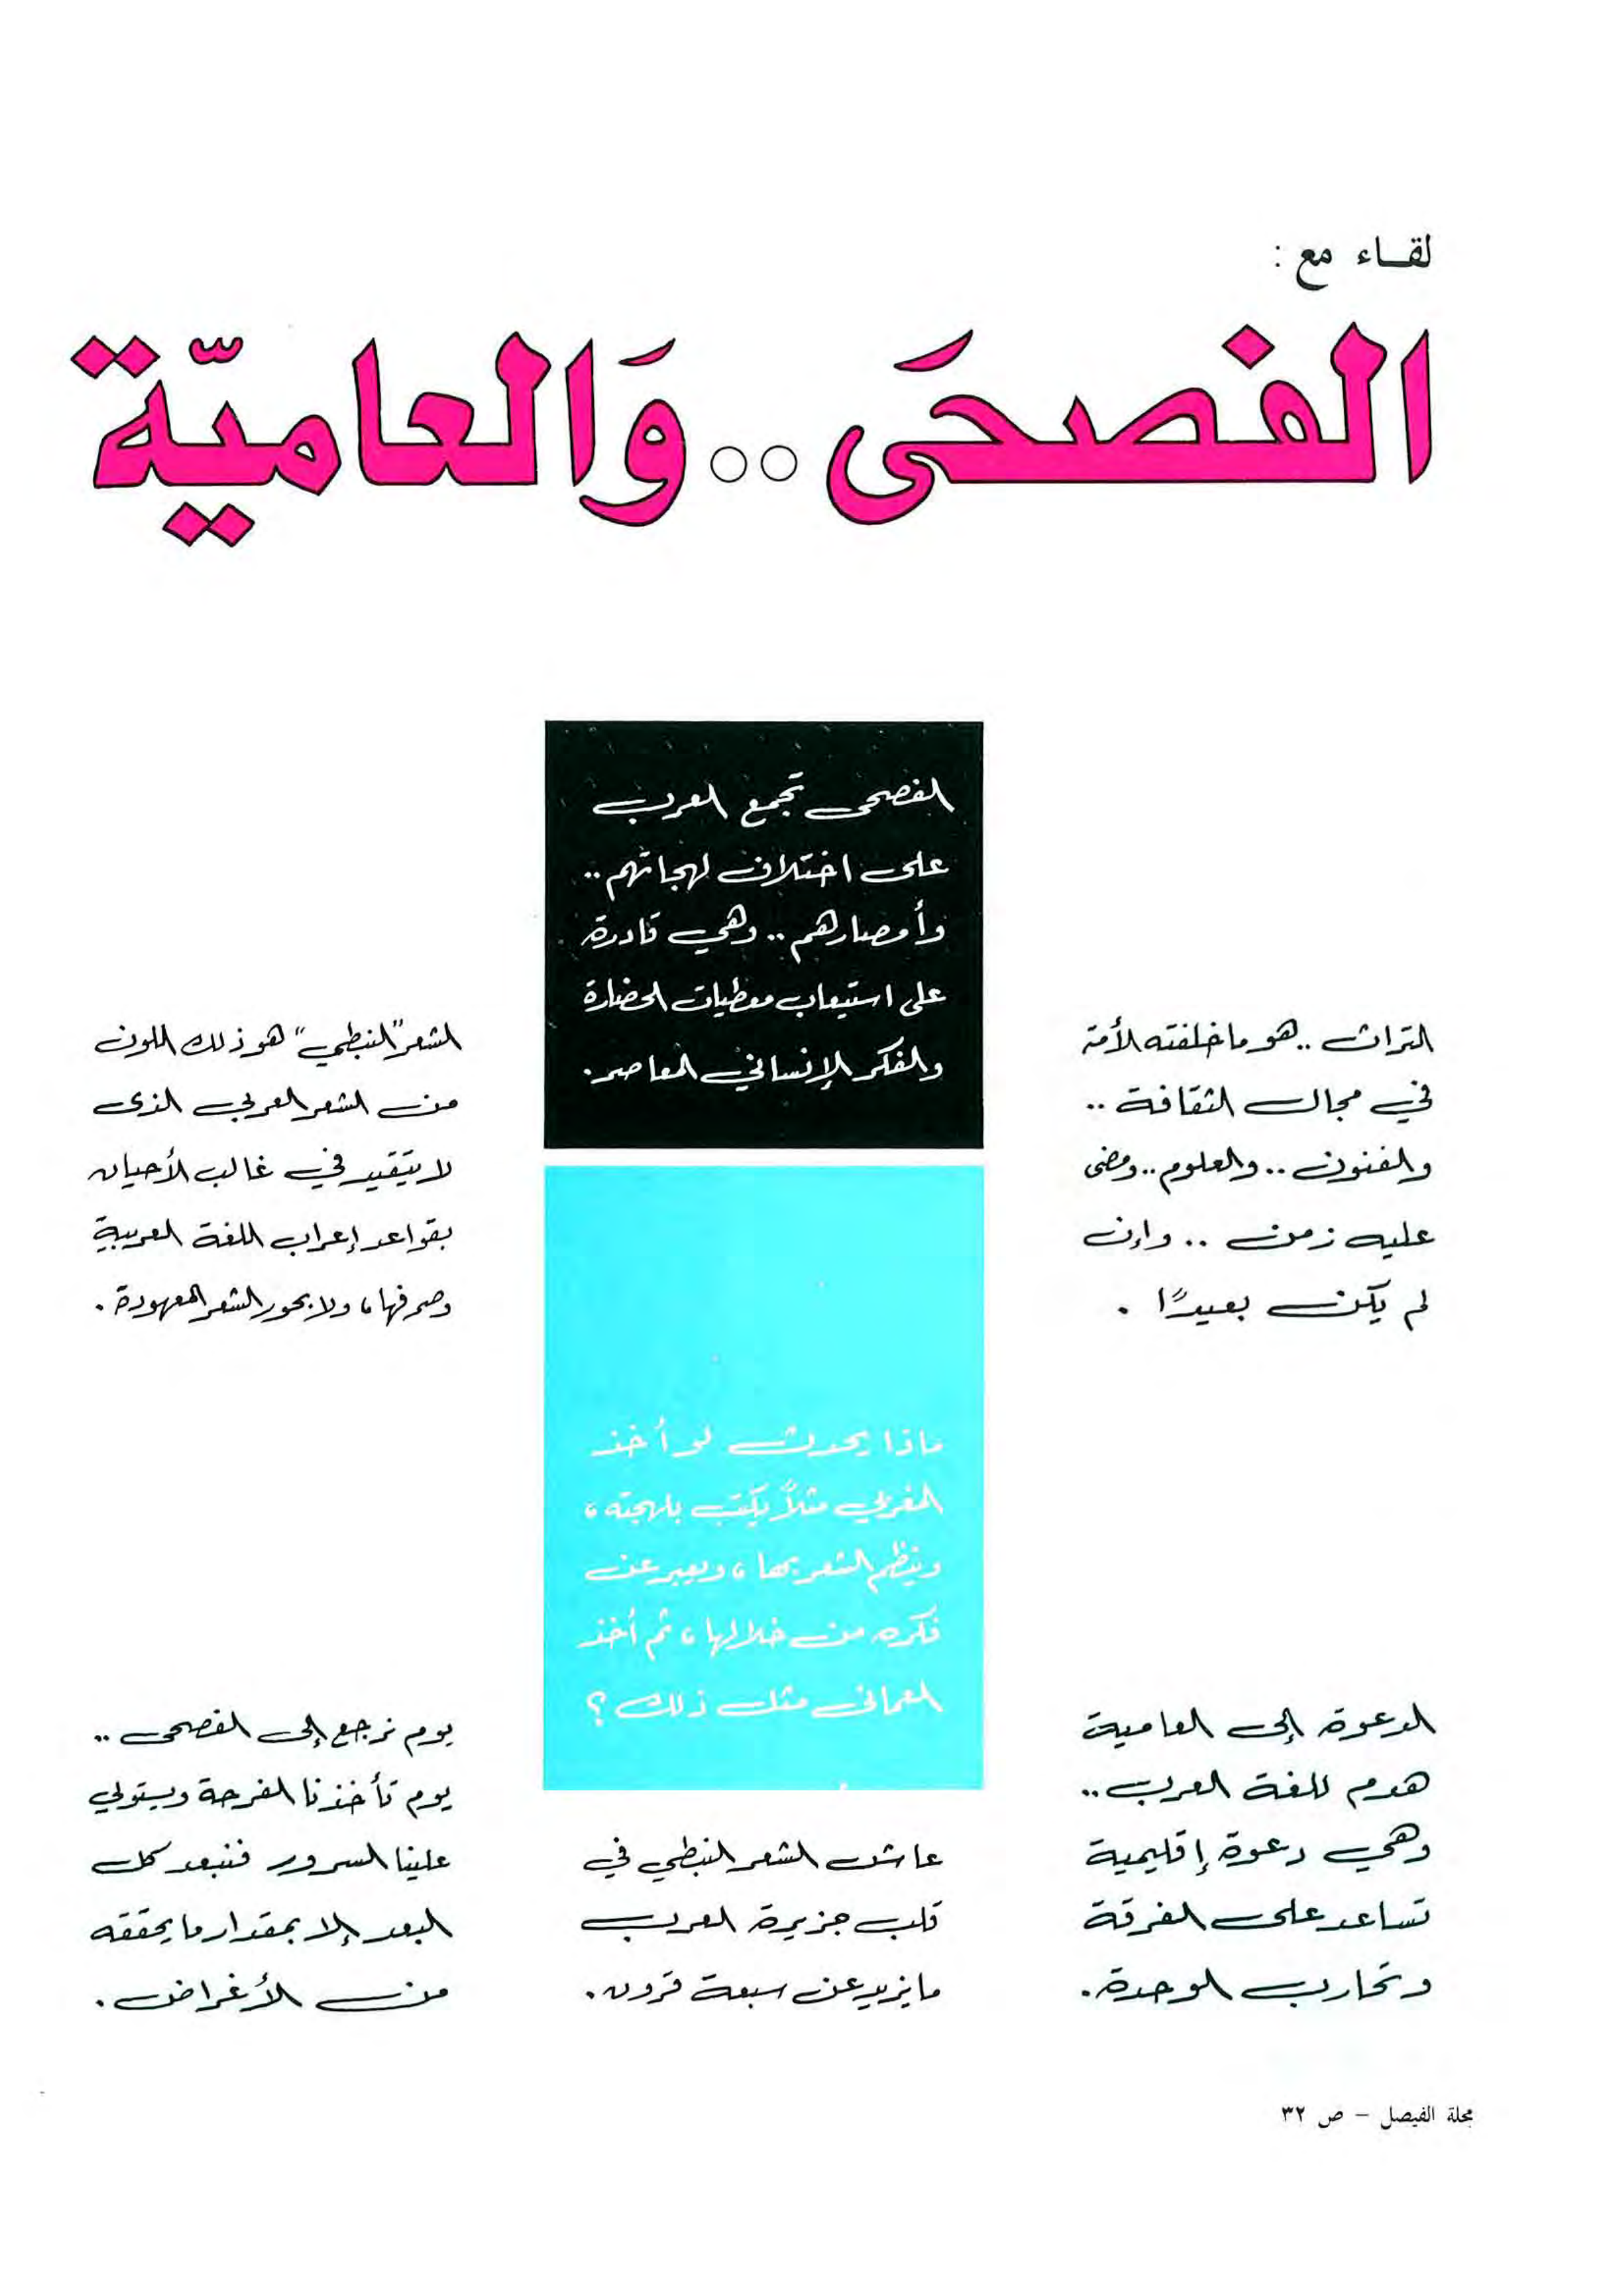 لقاء مع :
الفصحَى .. وَالعاميّة
الفصحى تجمع العرب
على اختلاف لهجاتهم ..
وأمصارهم .. وهي قادرة
على استيعاب معطيات الحضارة
والفكر الإنساني المعاصر.
التراث .. هو ما خلفته الأمة
في مجال الثقافة ..
والفنون .. والعلوم .. ومضى
عليه زمن .. وإن
لم يكن بعيدًا .
الشعر "النبطي" هو ذلك اللون
من الشعر العربي الذى
لا يتقيد في غالب الأحيان
بقواعد إعراب اللغة العربية
وصرفها ، ولا بحور الشعر المعهودة .
ماذا يحدث لو أخذ
المغربي مثلاً يكتب بلهجته ،
وينظم الشعر بها ، ويعبر عن
فكره من خلالها ، ثم أخذ
العمانى مثل ذلك ؟
الدعوة إلى العامية
هدم للغة العرب ..
وهي دعوة إقليمية
تساعد على الفرقة
وتحارب الوحدة .
عاش الشعر النبطي في
قلب جزيرة العرب
ما يزيد عن سبعة قرون .
يوم نرجع إلى الفصحى ..
يوم تأخذنا الفرحة ويستولي
علينا السرور فنبعد كل
البعد إلا بمقدار ما يحققه
من الأغراض .
مجلة الفيصل - ص ٣٢